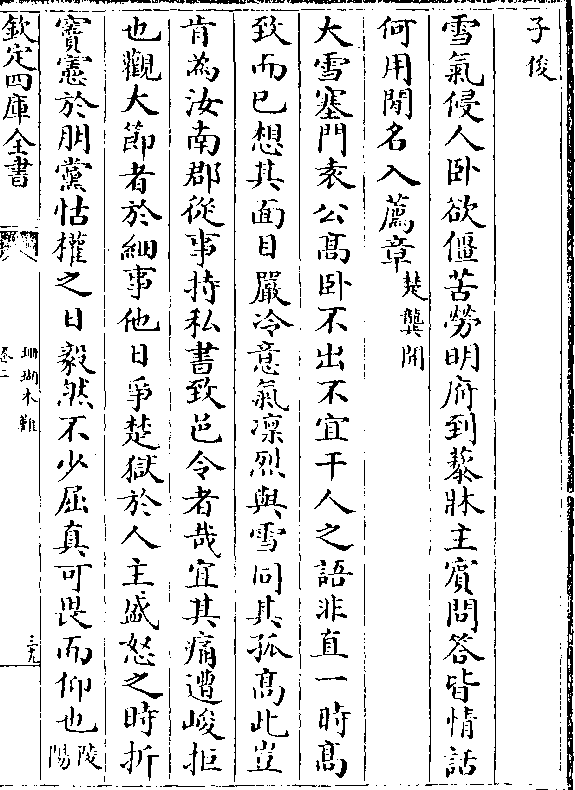 子俊
雪氣侵人卧欲僵苦勞明府到藜牀主賓問答皆情話
何用閒名入薦章楚龔開
大雪塞門袁公髙卧不出不宜干人之語非直一時髙
致而已想其面目嚴冷意氣凛烈與雪同其孤髙此豈
肯為汝南郡從事持私書致邑令者哉宜其痛遭峻拒
也觀大節者於細事他日爭楚獄於人主盛怒之時折
竇憲於朋黨怙權之日毅然不少屈真可畏而仰也陵陽
欽定四庫全書
珊瑚木難
卷二
三九